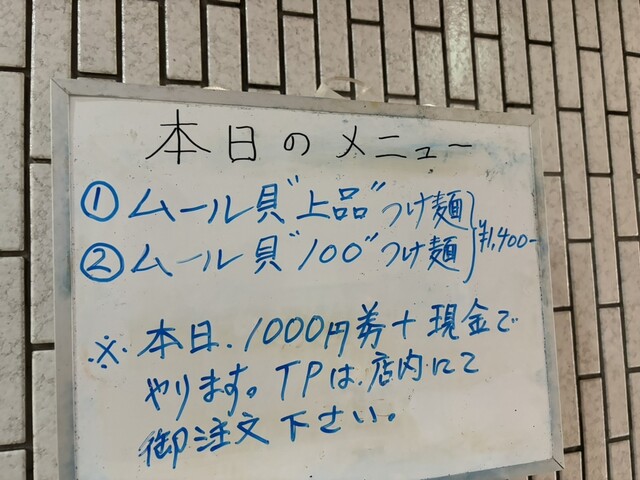 本日のメニュー
①ムール貝"上品"つけ麺
②ムール貝"100"つけ麺
¥1,400-
※本日、1000円券+現金で
やります。TPは、店内にて
御注文下さい。